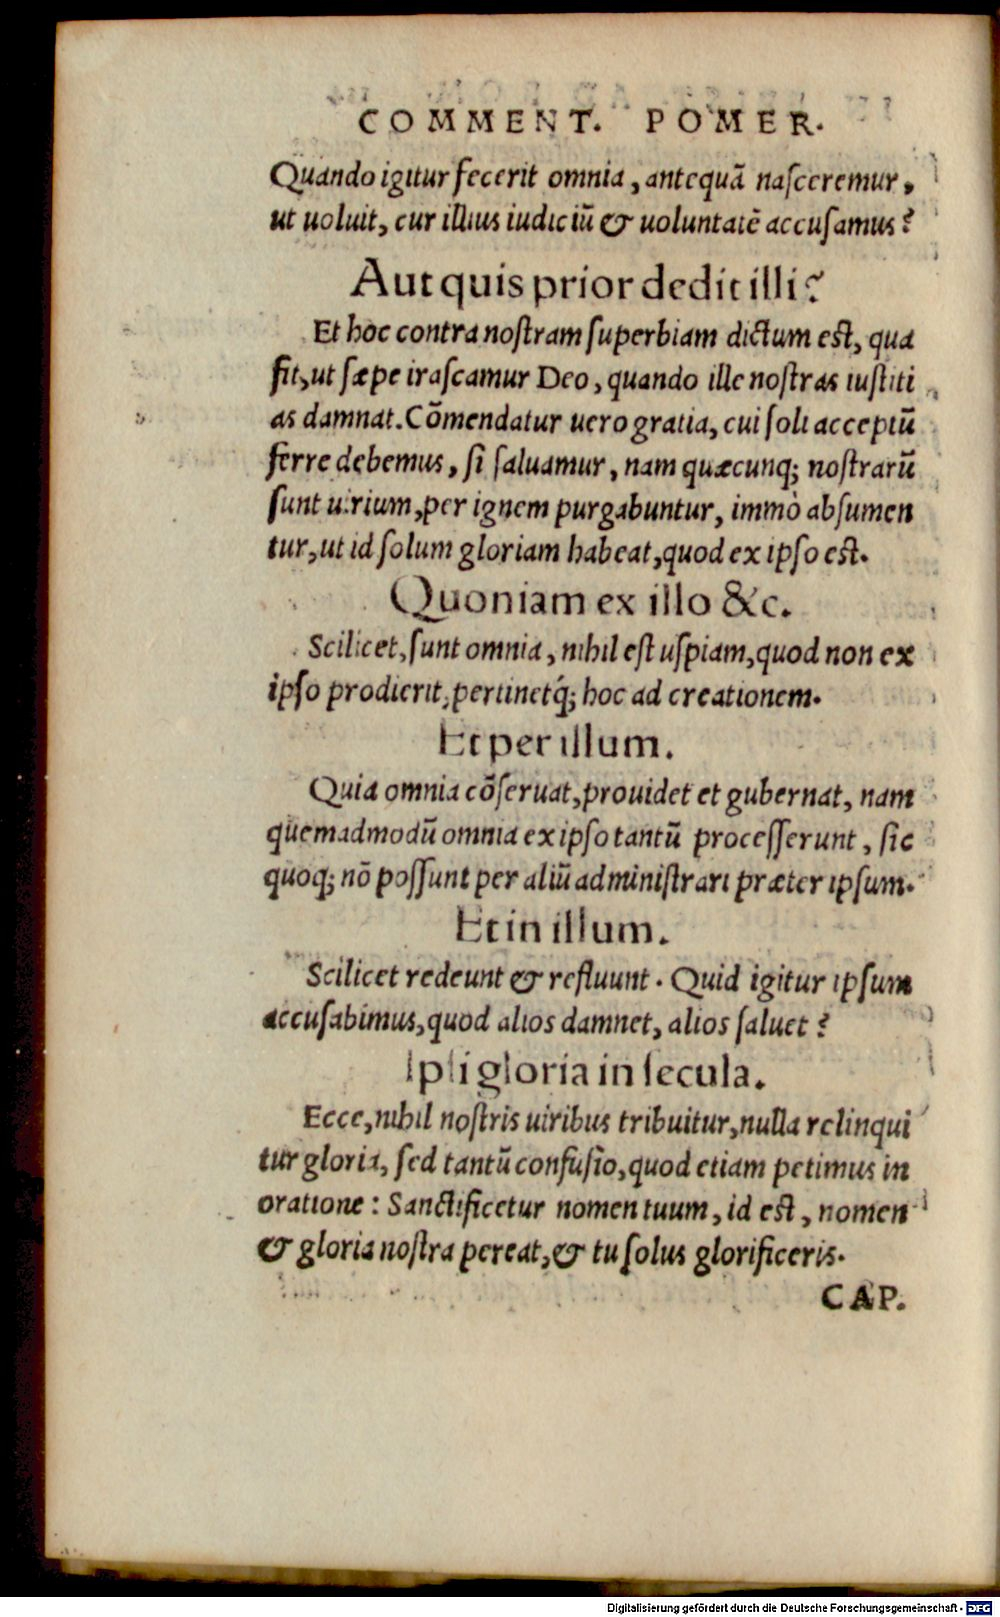 COMMENT. POMER.
Quando igitur fecerit omnia, antequā naſceremur,
ut uoluit, cur illius iudiciū & uoluntatē accuſamus?
Aut quis prior dedit illi?
Et hoc contra noſtram ſuperbiam dictum eſt, qua
fit, ut ſæpe iraſcamur Deo, quando ille noſtras iuſtiti
as damnat. Cōmendatur uero gratia, cui ſoli acceptū
ferre debemus, ſi ſaluamur, nam quæcunq; noſtrarū
ſunt uirium, per ignem purgabuntur, immò abſumen
tur, ut id ſolum gloriam habeat, quod ex ipſo eſt.
Quoniam ex illo &c.
Scilicet, ſunt omnia, nihil eſt uſpiam, quod non ex
ipſo prodierit, pertinetq́; hoc ad creationem.
Et per illum.
Quia omnia cōſeruat, prouidet et gubernat, nam
quemadmodū omnia ex ipſo tantū proceſſerunt, ſic
quoq; nō poſſunt per aliū adminiſtrari præter ipſum.
Et in illum.
Scilicet redeunt & refluunt. Quid igitur ipſum
accuſabimus, quod alios damnet, alios ſaluet?
Ipſi gloria in ſecula.
Ecce, nihil noſtris uiribus tribuitur, nulla relinqui
tur gloria, ſed tantū confuſio, quod etiam petimus in
oratione: Sanctificetur nomen tuum, id eſt, nomen
& gloria noſtra pereat, & tu ſolus glorificeris.
CAP.
Digitalisierung gefördert durch die Deutsche Forschungsgemeinschaft - DFG